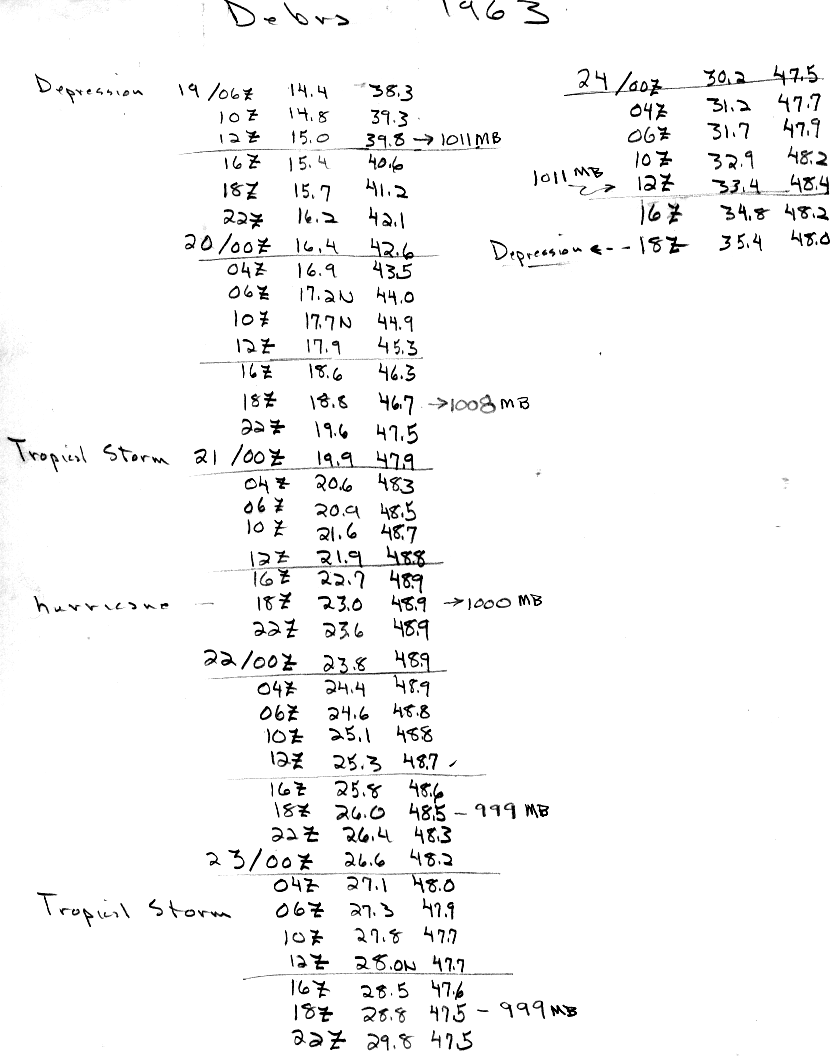 Debra 1963
Depression 19/06Z 14.4 38.3
10Z 14.8 39.3
12Z 15.0 39.8 → 1011MB
16Z 15.4 40.6
18Z 15.7 41.2
22Z 16.2 42.1
20/00Z 16.4 42.6
04Z 16.9 43.5
06Z 17.2N 44.0
10Z 17.7N 44.9
12Z 17.9 45.3
16Z 18.6 46.3
18Z 18.8 46.7 → 1008 MB
22Z 19.6 47.5
Tropical Storm 21/00Z 19.9 47.9
04Z 20.6 48.3
06Z 20.9 48.5
10Z 21.6 48.7
12Z 21.9 48.8
16Z 22.7 48.9
hurricane — 18Z 23.0 48.9 → 1000 MB
22Z 23.6 48.9
22/00Z 23.8 48.9
04Z 24.4 48.9
06Z 24.6 48.8
10Z 25.1 48.8
12Z 25.3 48.7
16Z 25.8 48.6
18Z 26.0 48.5 – 999 MB
22Z 26.4 48.3
23/00Z 26.6 48.2
04Z 27.1 48.0
Tropical Storm 06Z 27.3 47.9
10Z 27.8 47.7
12Z 28.0N 47.7
16Z 28.5 47.6
18Z 28.8 47.5 – 999 MB
22Z 29.8 47.5
24/00Z 30.2 47.5
04Z 31.2 47.7
06Z 31.7 47.9
10Z 32.9 48.2
1011 MB → 12Z 33.4 48.4
16Z 34.8 48.2
Depression ← -- 18Z 35.4 48.0